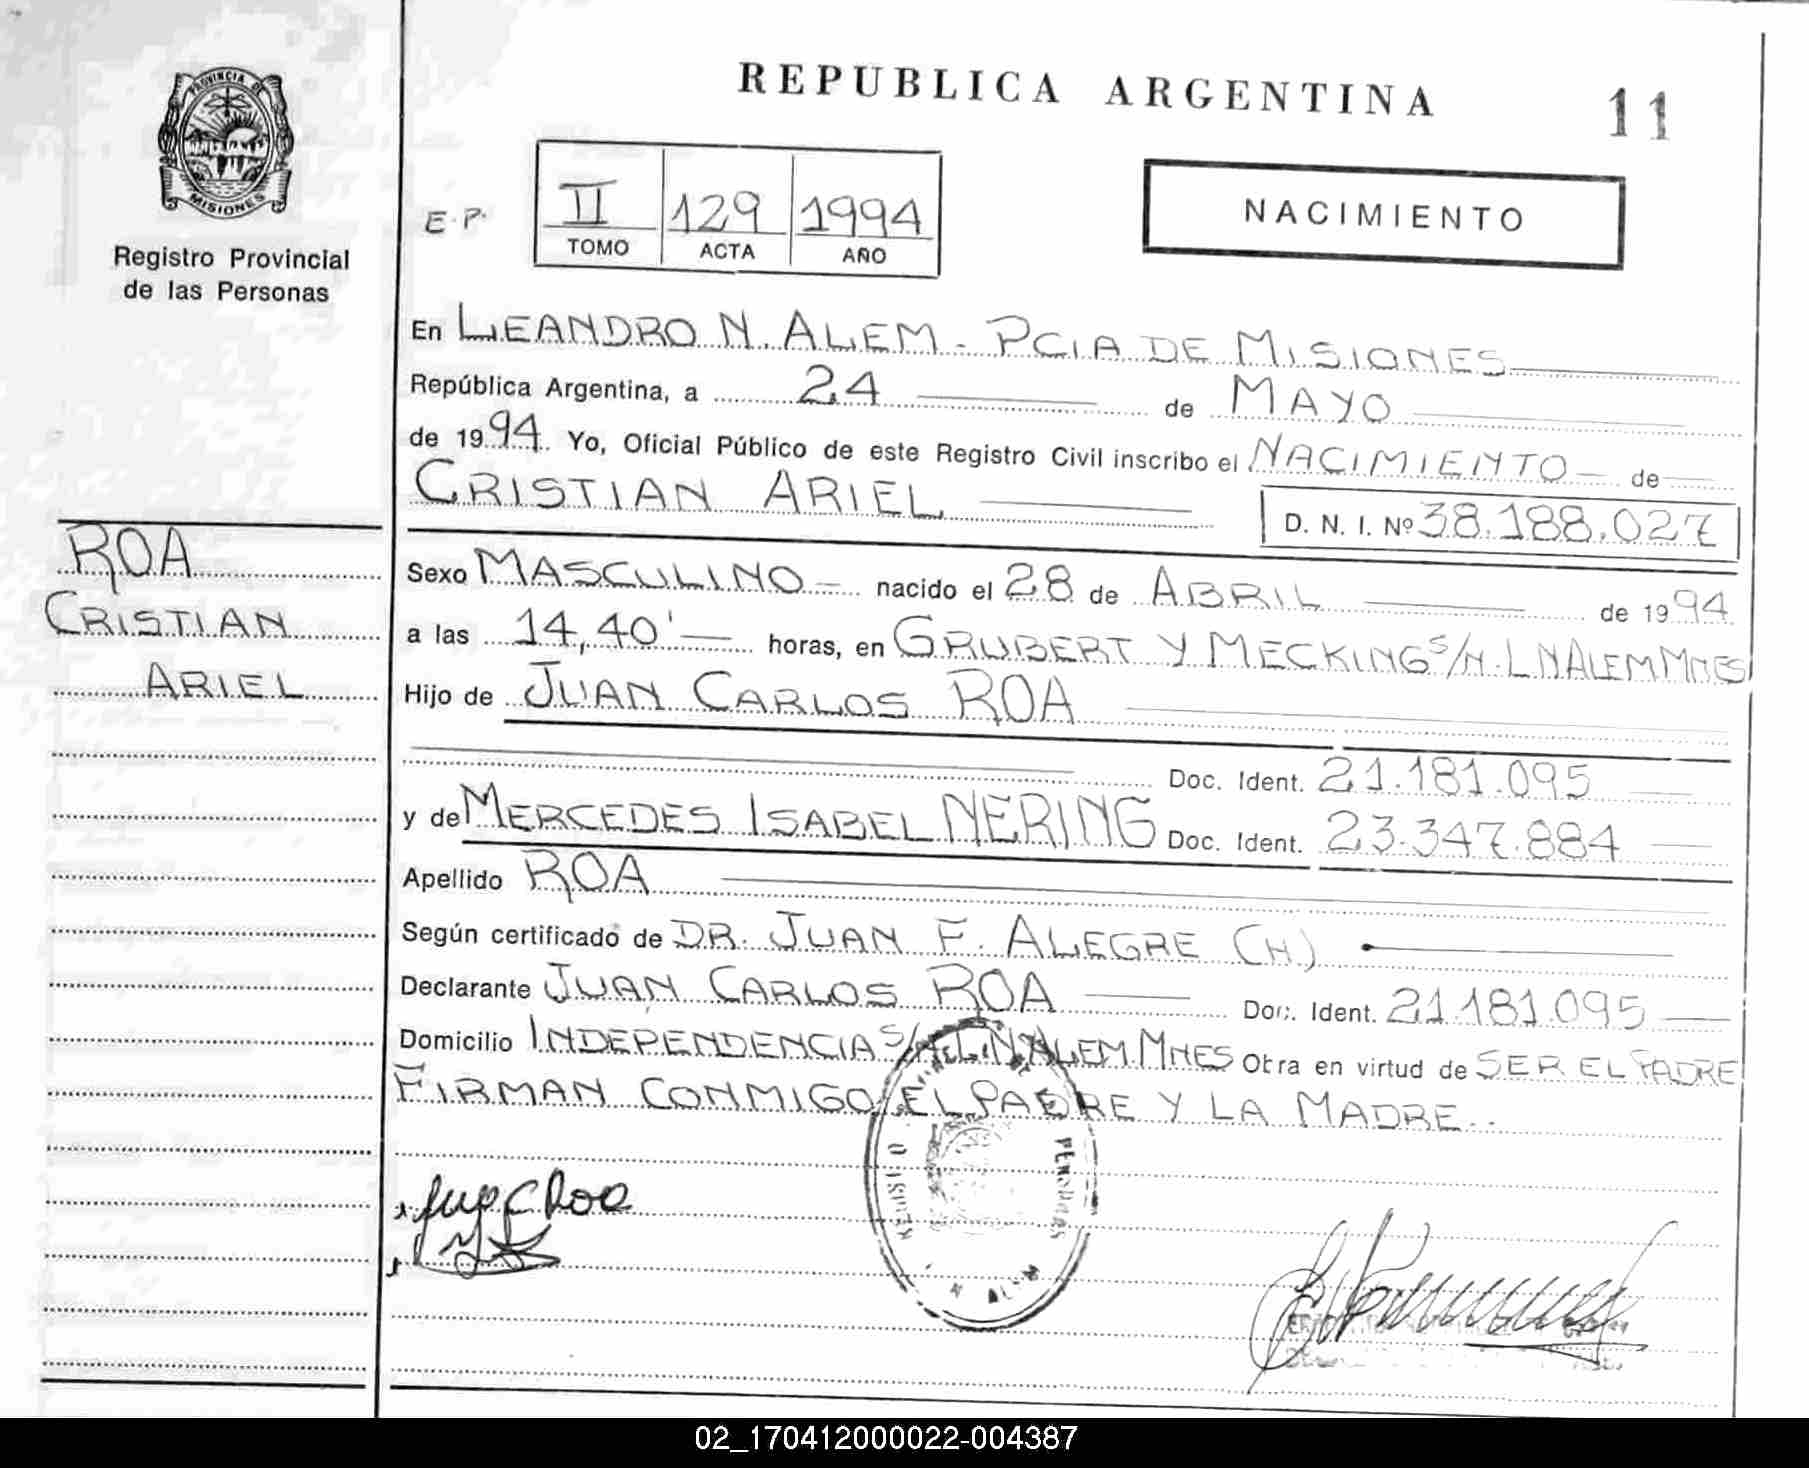 REPUBLICA ARGENTINA
11
PROVINCIA DE
MISIONES
Registro Provincial
de las Personas
E.P.
II 129 1994
TOMO ACTA AÑO
NACIMIENTO
En LEANDRO N. ALEM - PCIA DE MISIONES
República Argentina, a 24 de MAYO
de 1994. Yo, Oficial Público de este Registro Civil inscribo el NACIMIENTO de
CRISTIAN ARIEL
D. N. I. Nº 38.188.027
ROA
CRISTIAN
ARIEL
Sexo MASCULINO nacido el 28 de ABRIL de 1994
a las 14,40' horas, en GRUBERT Y MECKING S/N. L N ALEM MNES
Hijo de JUAN CARLOS ROA
Doc. Ident. 21.181.095
y de MERCEDES ISABEL NERING Doc. Ident. 23.347.884
Apellido ROA
Según certificado de DR. JUAN F. ALEGRE (H)
Declarante JUAN CARLOS ROA Doc. Ident. 21.181.095
Domicilio INDEPENDENCIA S/N L.N. ALEM. MNES Otra en virtud de SER EL PADRE
FIRMAN CONMIGO EL PADRE Y LA MADRE..
02_170412000022-004387